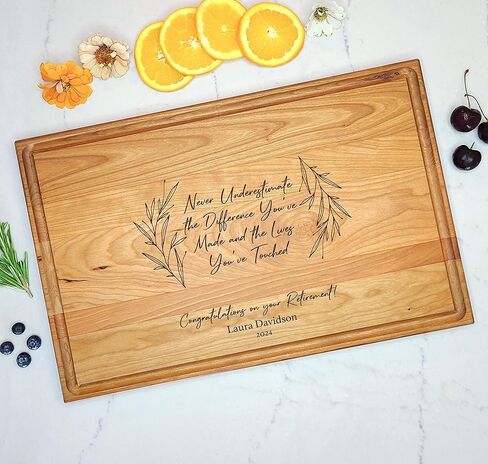 Never Underestimate
the Difference You've
Made and the Lives
You've Touched
Congratulations on your Retirement!
Laura Davidson
2024